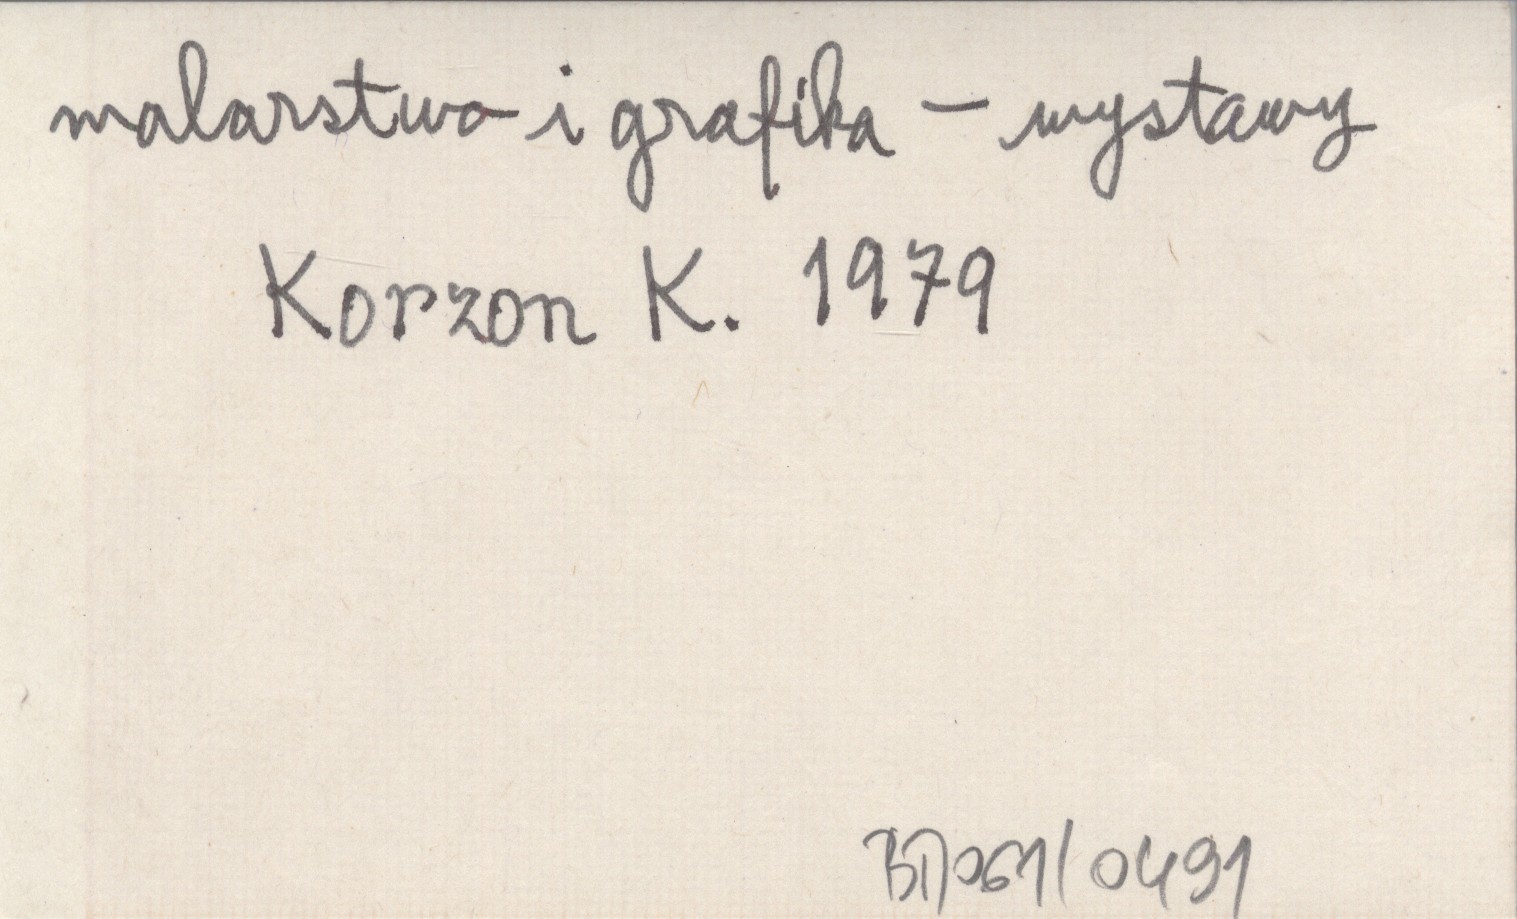 malarstwo i grafika – wystawy
Korzon K. 1979
BJ/061/0491